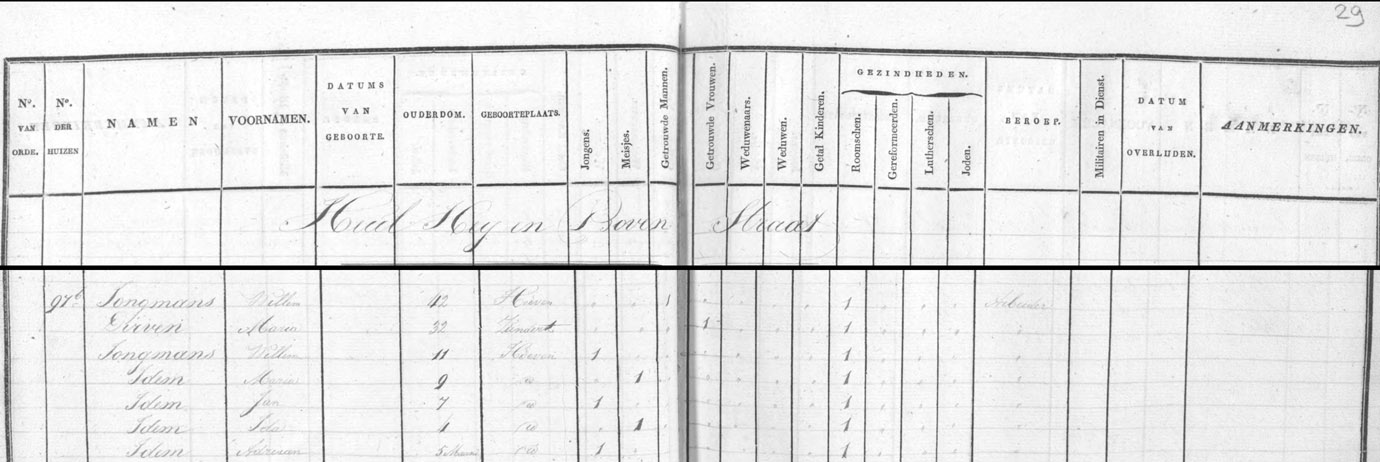 29
Nº. VAN ORDE. Nº. DER HUIZEN NAMEN VOORNAMEN. DATUMS VAN GEBOORTE. OUDERDOM. GEBOORTEPLAATS. Jongens. Meisjes. Getrouwde Mannen. Getrouwde Vrouwen. Weduwenaars. Weduwen. Getal Kinderen. GEZINDHEDEN. Roomschen. Gereformeerden. Lutherschen. Joden. BEROEP. Militairen in Dienst. DATUM VAN OVERLIJDEN. AANMERKINGEN.
Hey en Boven Straat
97b Jongmans Willem 42 Hoeven 1 1 Arbeider
Dirven Maria 32 Zundert 1 1
Jongmans Willem 11 Hoeven 1 1
Idem Maria 9 id 1 1
Idem Jan 7 id 1 1
Idem Ida 1 id 1 1
Idem Adriaan 5 id 1 1